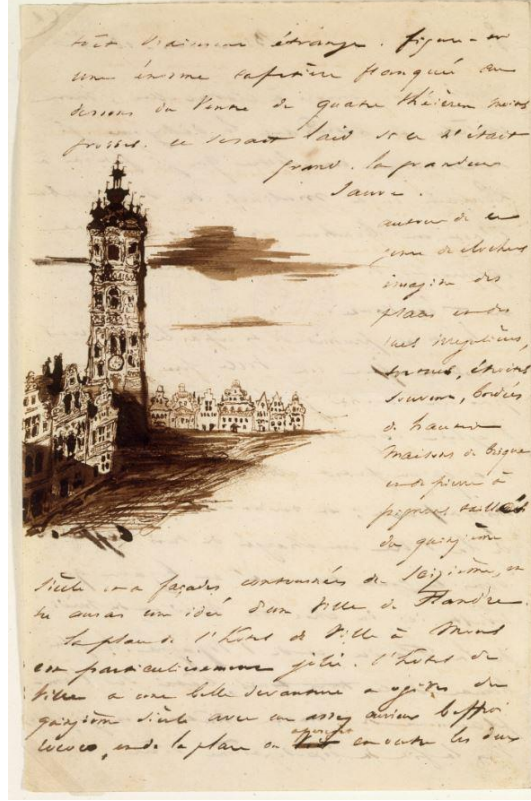 tout à fait étrange. figure-toi
une énorme cafetière flanquée au
dessous du ventre de quatre théières moins
grosses. ce serait laid si ce n'était
grand. la grandeur
sauve.
autour de ce
genre de clochers
imagine des
places et des
rues irrégulières,
tortues, étroites
souvent, bordées
de hautes
maisons de brique
et de pierre à
pignons taillés
du quinzième
siècle et à façades contournées du seizième, et
tu auras une idée d'une ville de Flandre
la place de l'hôtel de Ville à Mons
est particulièrement jolie. l'hôtel de
Ville a une belle devanture à ogives du
quinzième siècle avec un assez curieux beffroi
rococo, et de la place on aperçoit en outre les deux